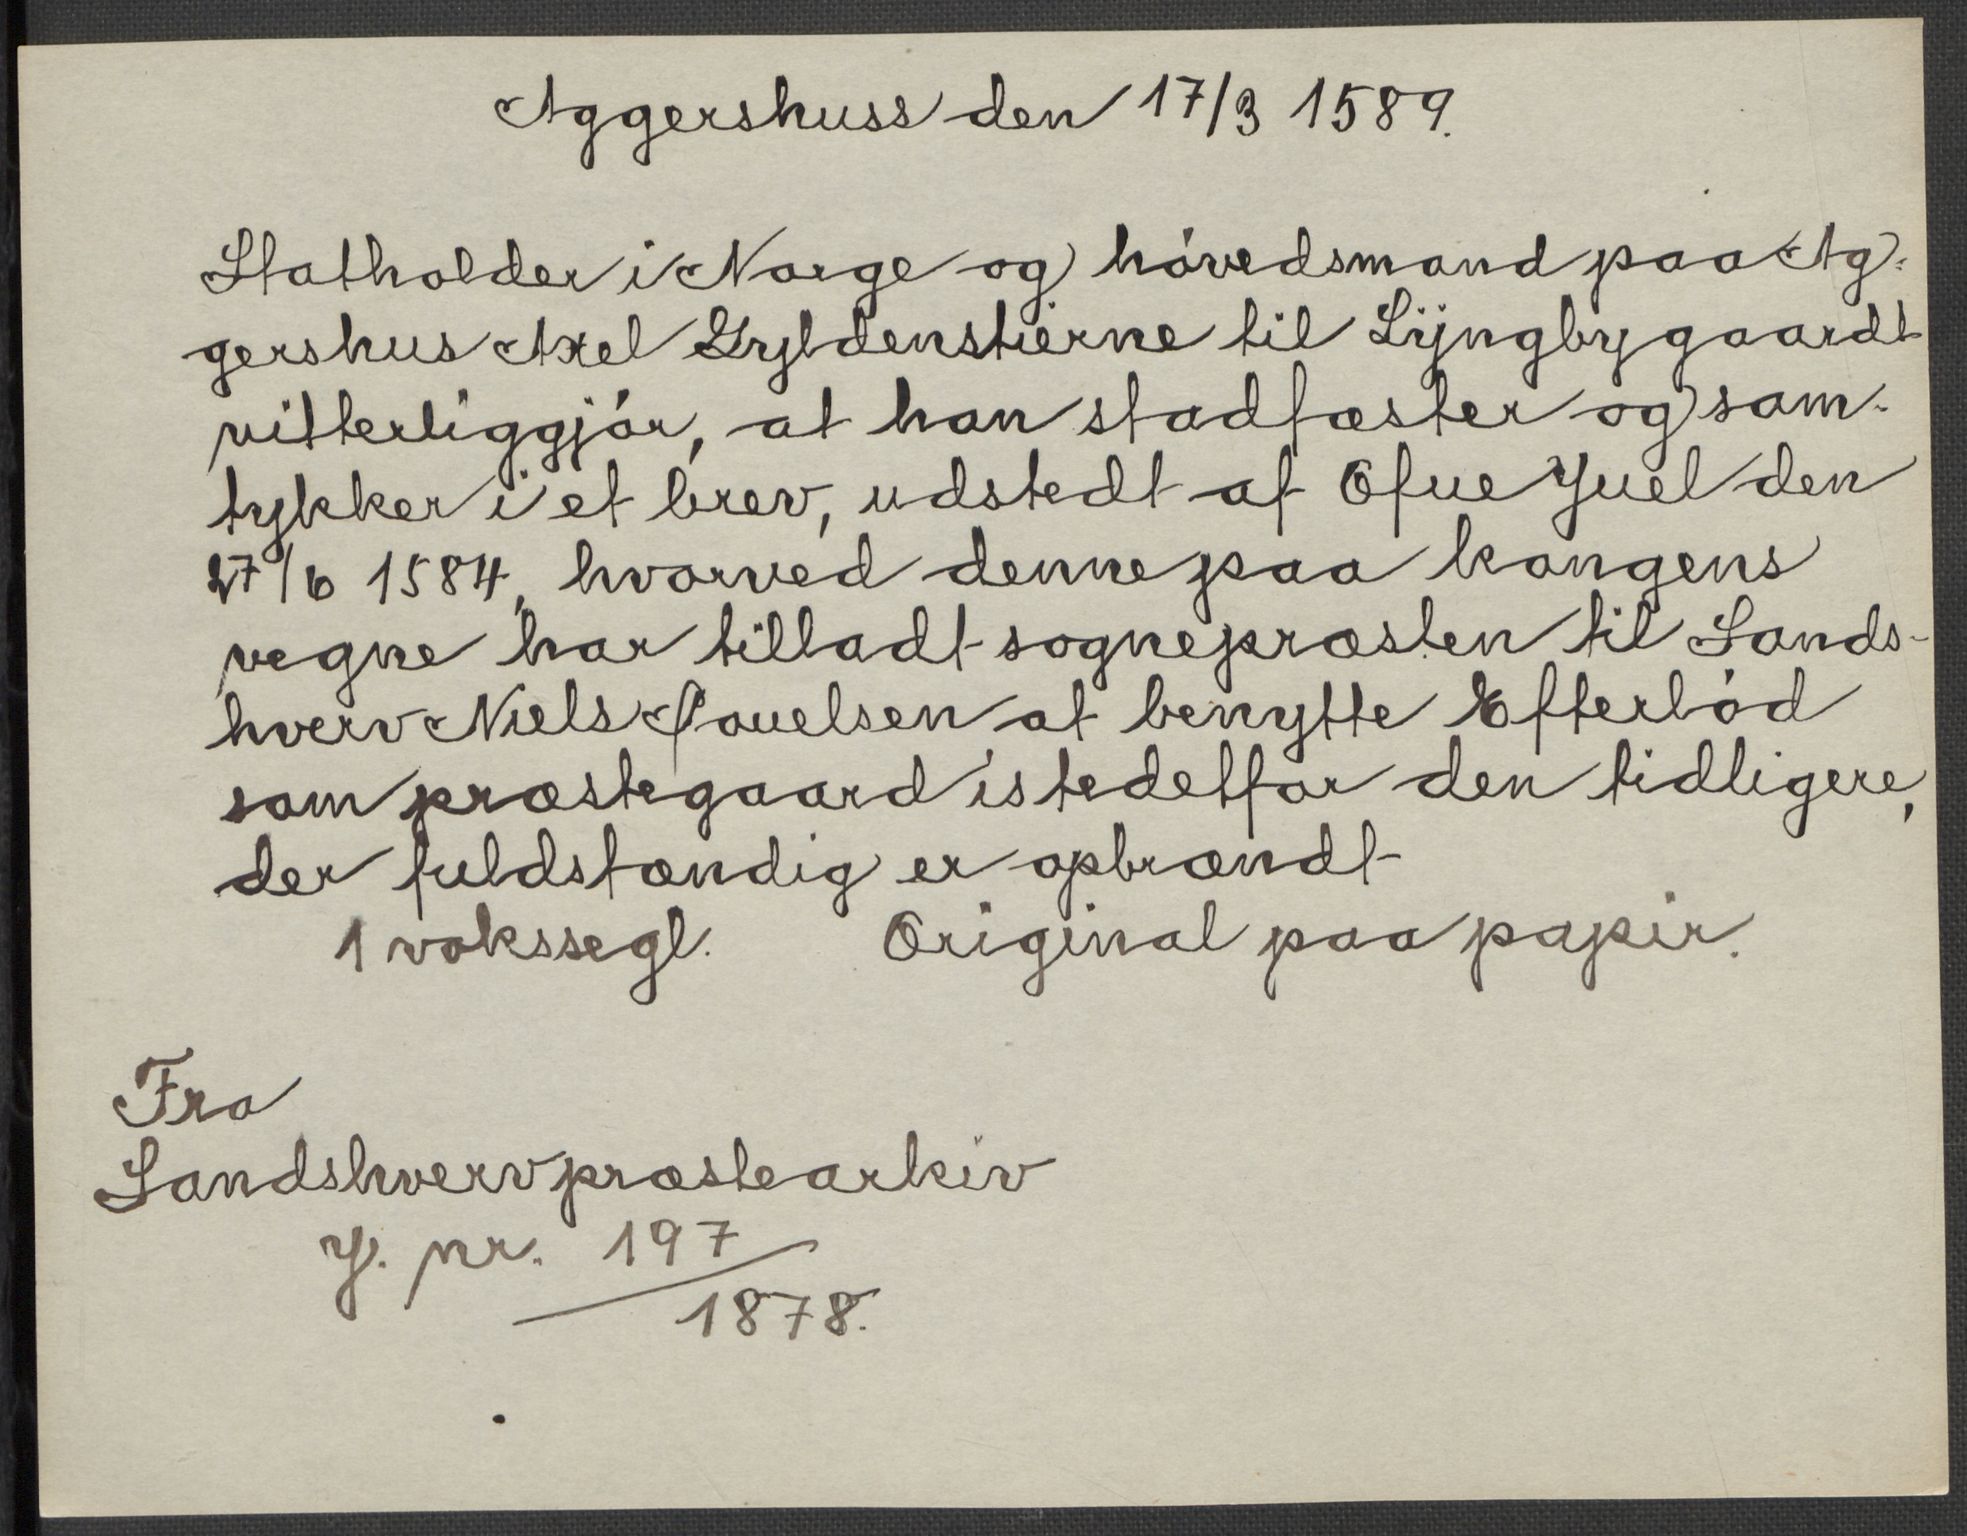 Aggershuss den 17/3 1589.
Statholder i Norge og hóvedsmand paa Ag-
gershus Axel Gyldenstierne til Lÿngbygaardt
vitterliggjór, at han stadfæster og sam-
tykker i et brev, udstedt af Ofue Juel den
27/6 1584, hvorved denne paa kongens
vegne har tilladt sognepræsten til Sands-
hverv Niels Pouelsen at benytte Efterlód
som præstegaard istedetfor den tidligere,
der fuldstændig er opbrændt
1 vokssegl. Original paa papir.
Fra
Sandshverv præstearkiv
J. nr. 197
1878.